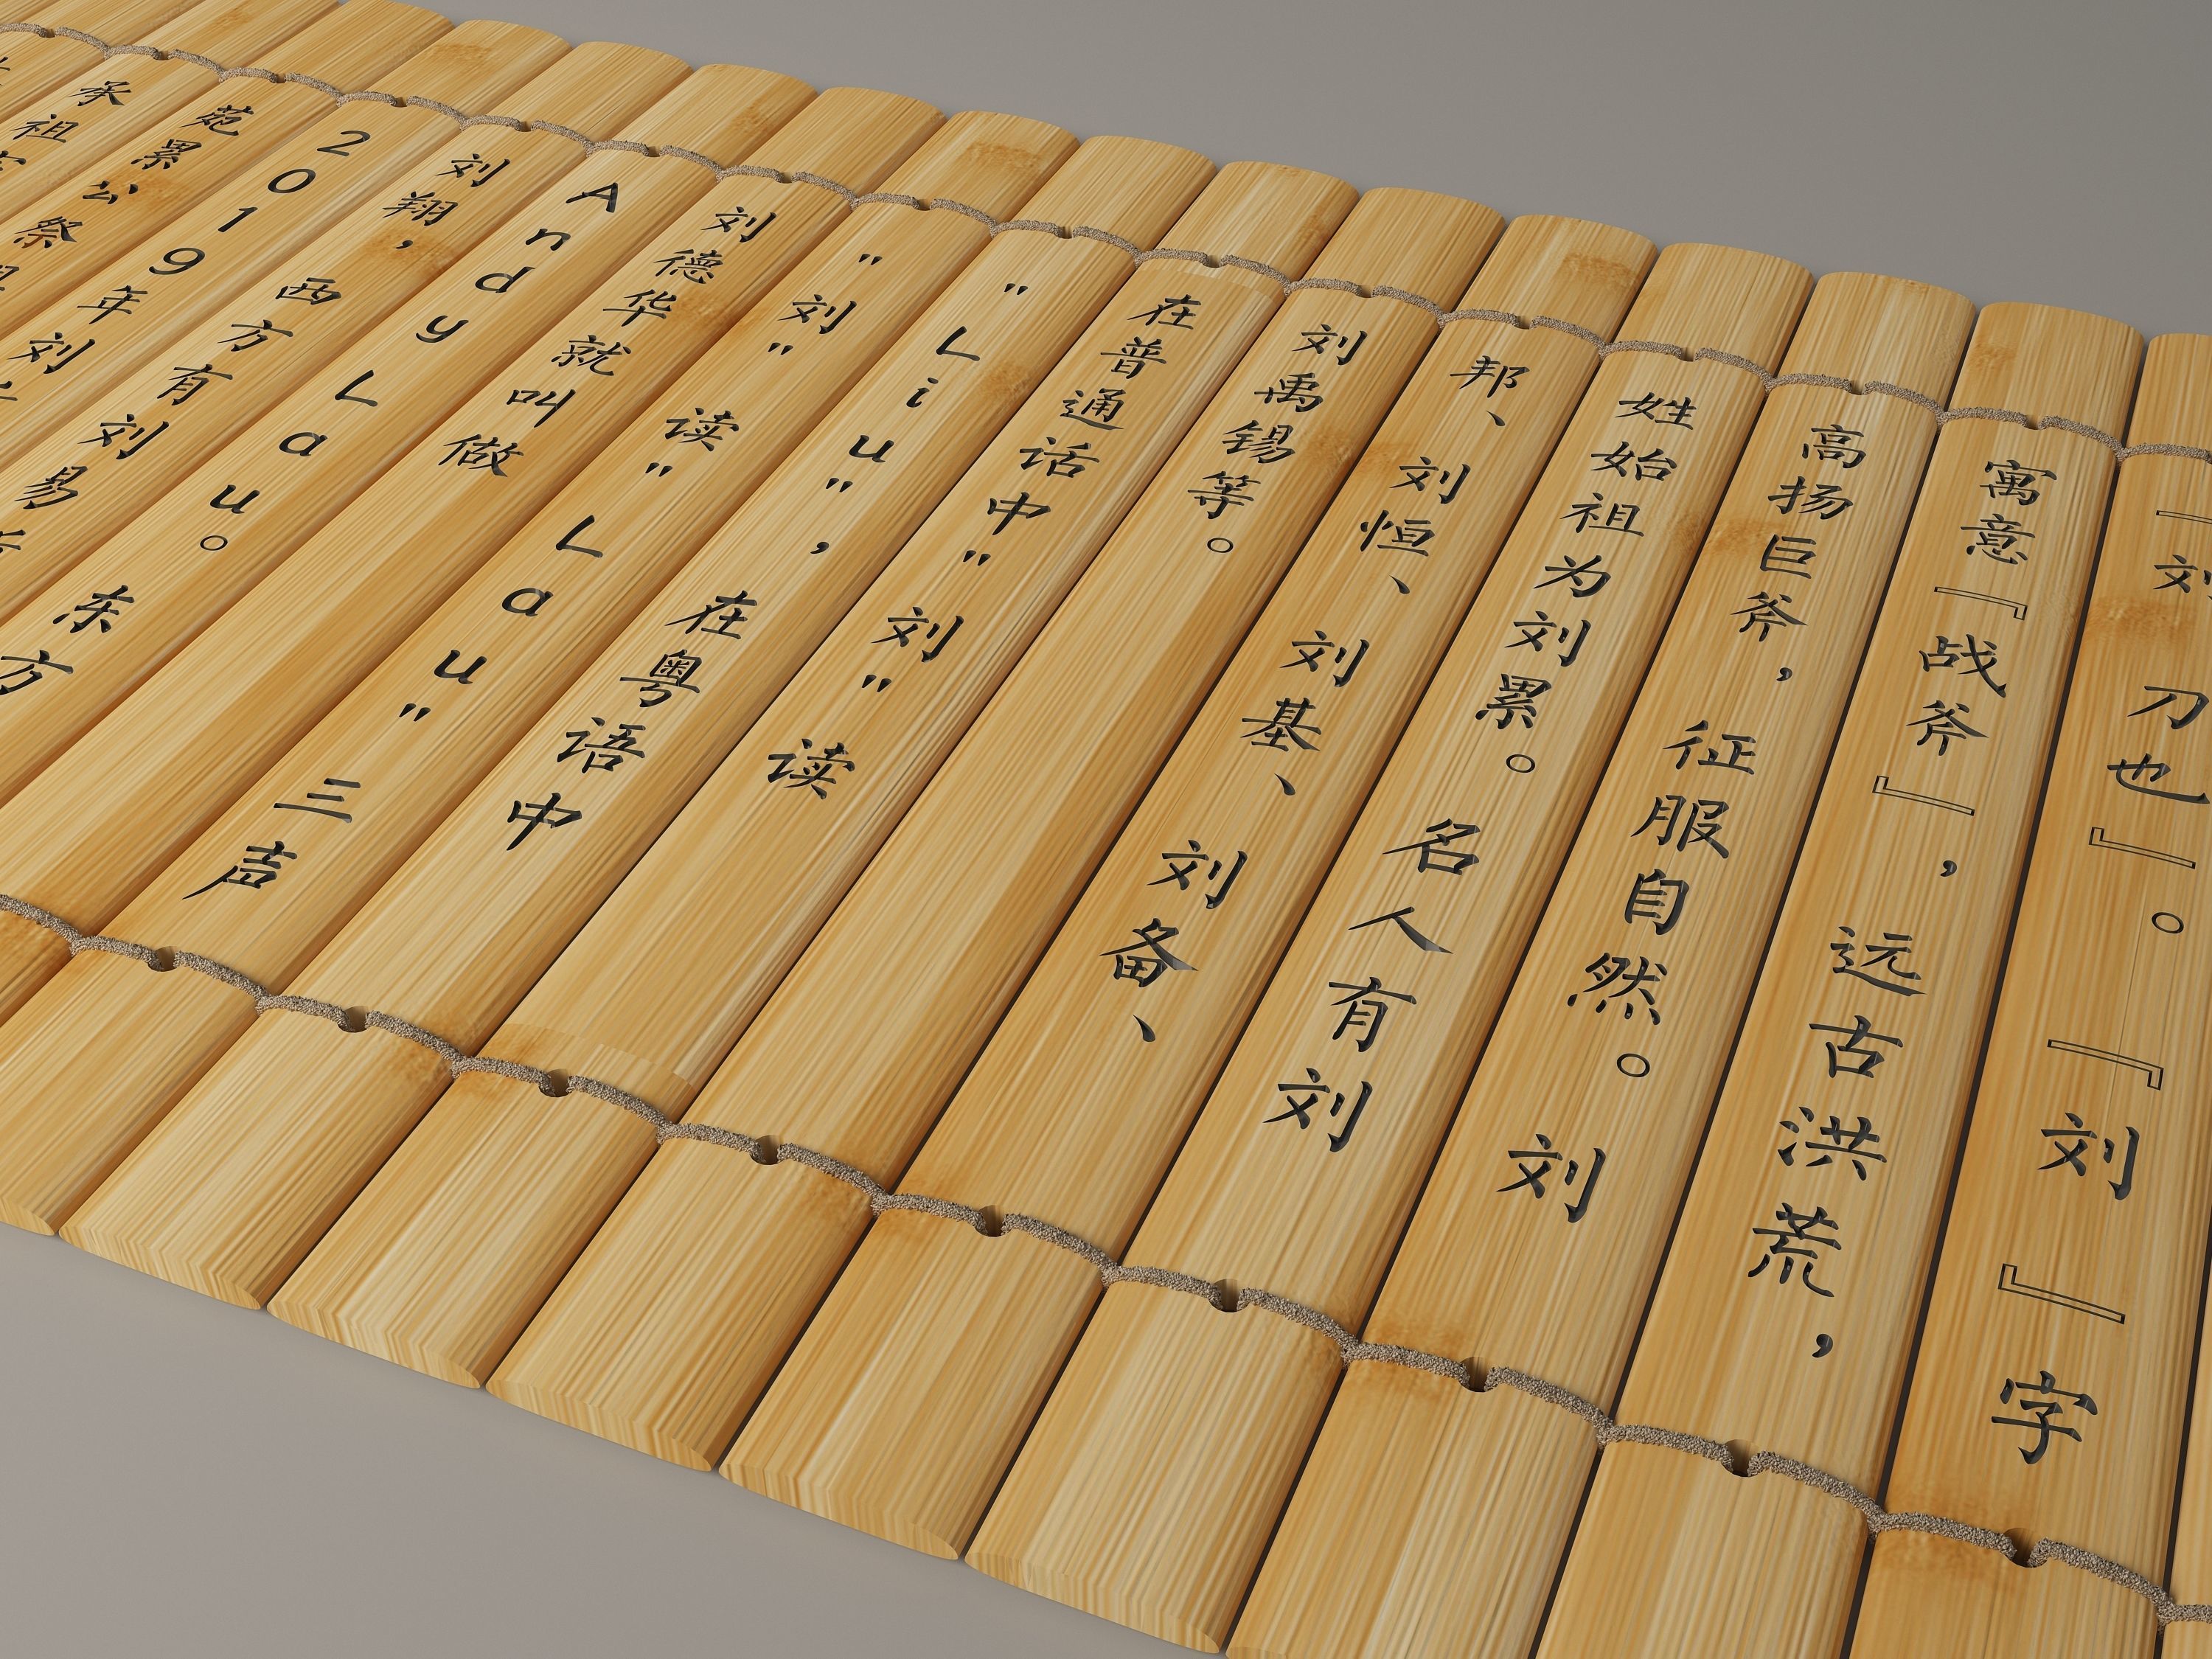 『刘 刀也』。『刘』字
寓意『战斧』，远古洪荒，
高扬巨斧，征服自然。刘
姓始祖为刘累。名人有刘
邦、刘恒、刘基、刘备、
刘禹锡等。
在普通话中"刘"读
"Liu"，在粤语中
"刘" 读"Lau" 三声
刘德华就叫做
Andy Lau。东方
刘翔，西方有刘易
2019年刘
苑累公祭
承祖